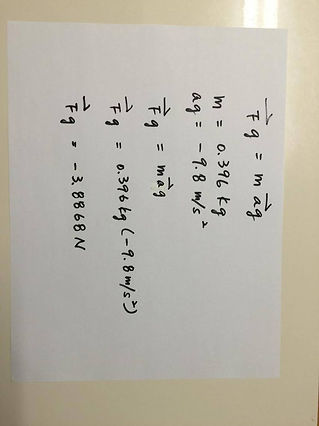 F⃗g = ma⃗g
m = 0.396 kg
ag = -9.8 m/s²
F⃗g = ma⃗g
F⃗g = 0.396 kg (-9.8 m/s²)
F⃗g = -3.8868 N